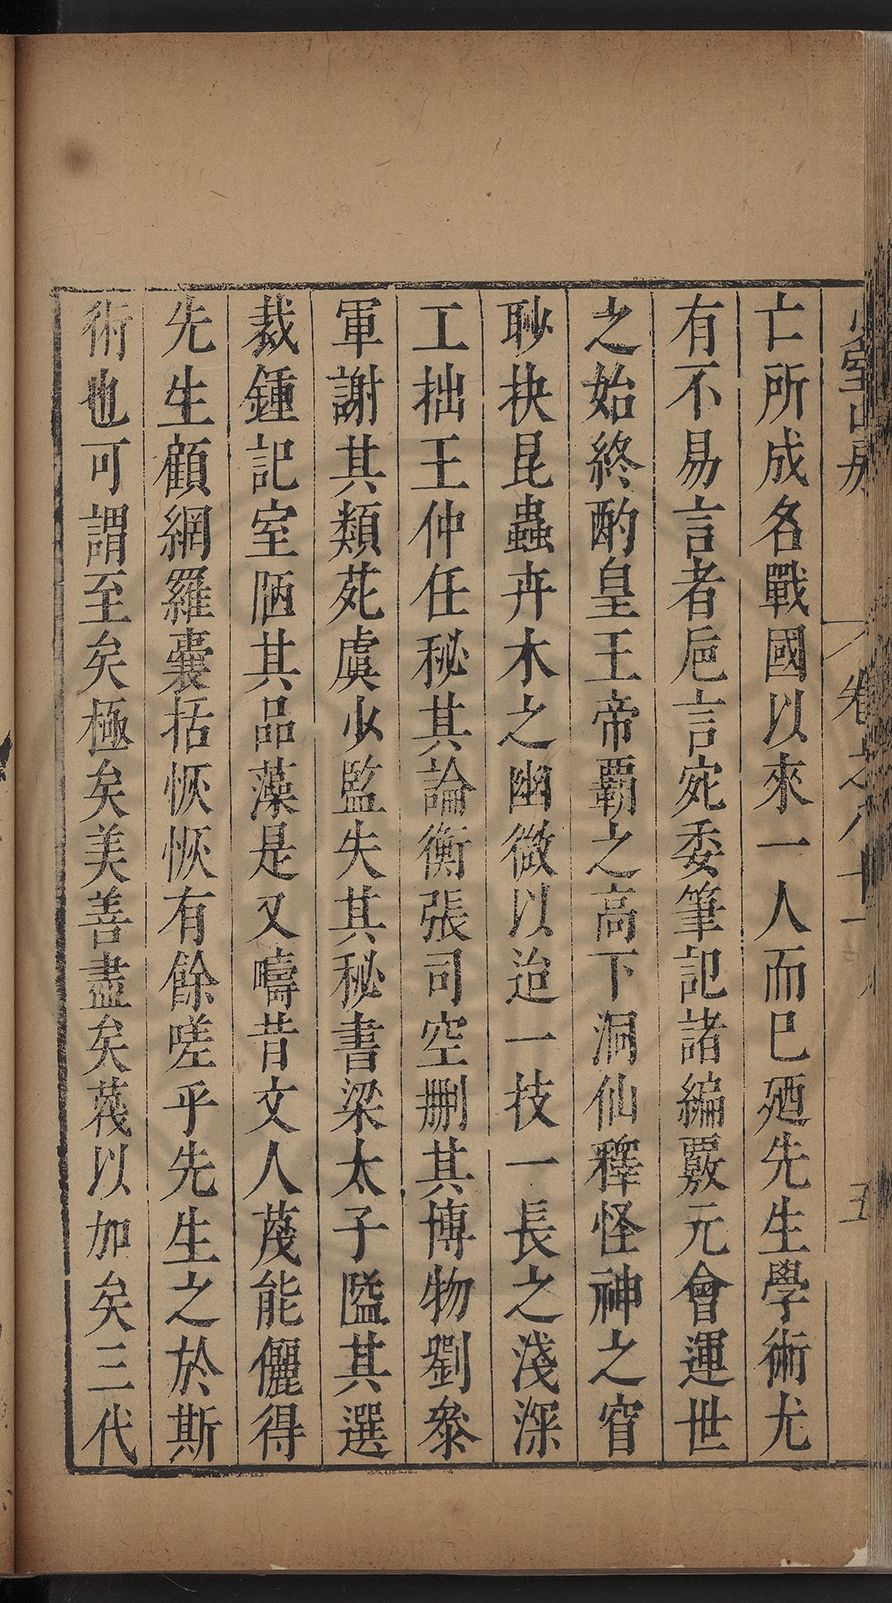 亡所成名戰國以來一人而已廼先生學術尤
有不易言者巵言宛委筆記諸編覈元會運世
之始終酌皇王帝覇之高下洞仙釋怪神之窅
眇抉昆蟲卉木之幽微以迨一技一長之淺深
工拙王仲任秘其論衡張司空刪其博物劉叅
軍謝其類苑虞少監失其秘書梁太子隘其選
裁鍾記室陋其品藻是又疇昔文人蔑能儷得
先生顧網羅囊括恢恢有餘嗟乎先生之於斯
術也可謂至矣極矣美善盡矣蔑以加矣三代
少室山房
卷之八十一
五